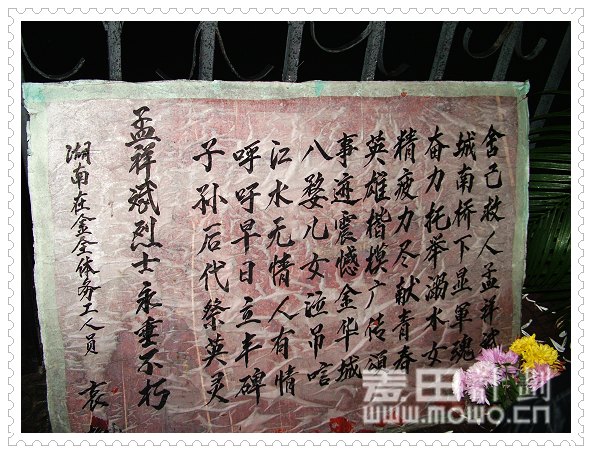 舍己救人孟祥斌
城南桥下显軍魂
奋力托举溺水女
精疲力尽献青春
英雄楷模广传颂
事迹震憾金华城
八婺儿女泣吊唁
江水无情人有情
呼吁早日立丰碑
子孙后代祭英灵
孟祥斌烈士永垂不朽
湖南在金全体务工人员 哀
麦田计划
www.mowo.cn